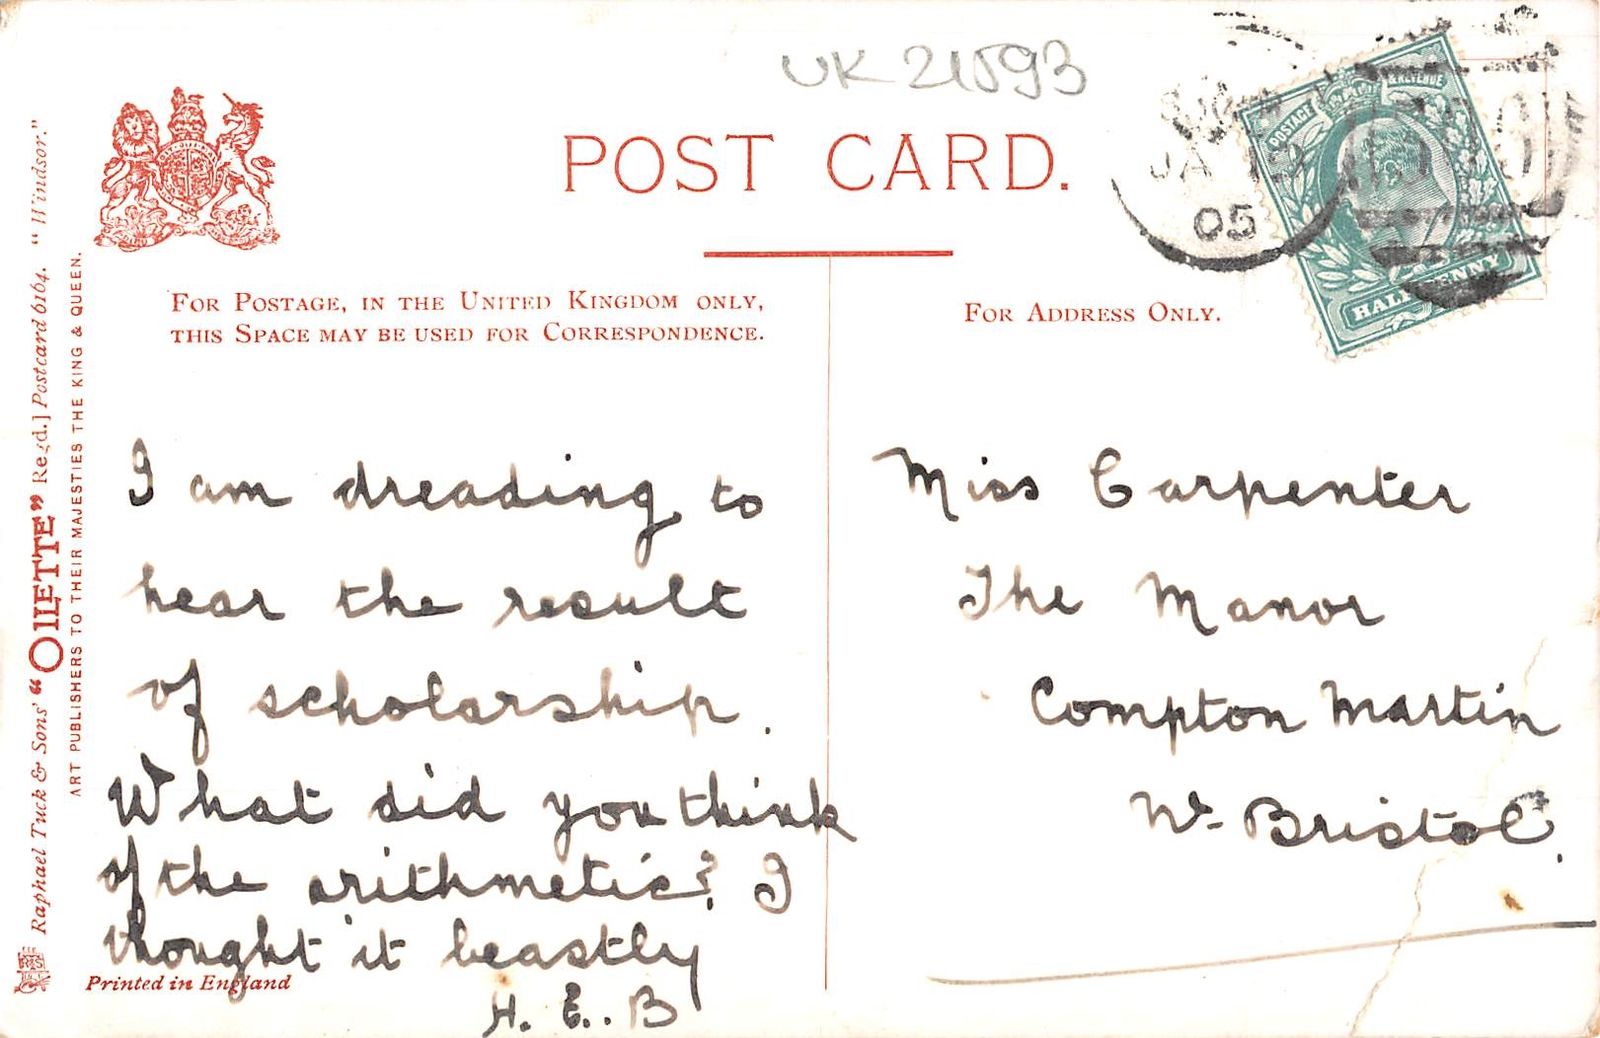 UK 21593
POST CARD.
FOR POSTAGE, IN THE UNITED KINGDOM ONLY,
THIS SPACE MAY BE USED FOR CORRESPONDENCE.
FOR ADDRESS ONLY.
POSTAGE & REVENUE
HALFPENNY
JA
05
I am dreading to
hear the result
of scholarship.
What did you think
of the arithmetic? I
thought it beastly
H. E. B
Miss Carpenter
The Manor
Compton Martin
Nr Bristol.
Raphael Tuck & Sons' "OILETTE" Regd.] Postcard 6164. "Windsor."
ART PUBLISHERS TO THEIR MAJESTIES THE KING & QUEEN.
Printed in England